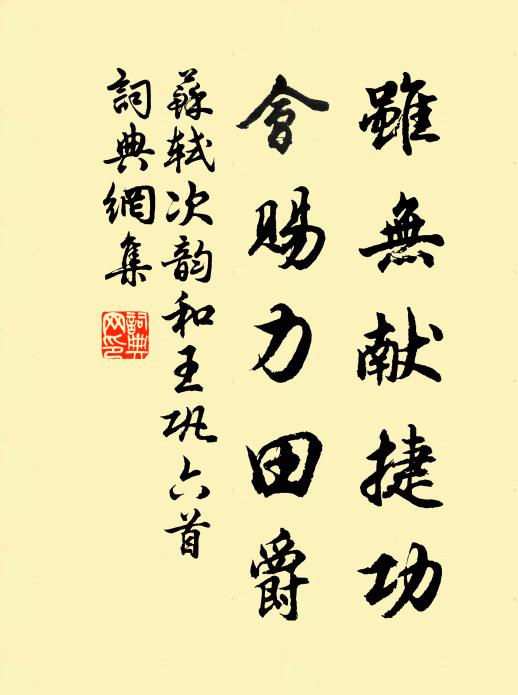 雖無献捷功
會賜力田爵
蘇軾次韵和王巩六首
詞典網集
詞典网印